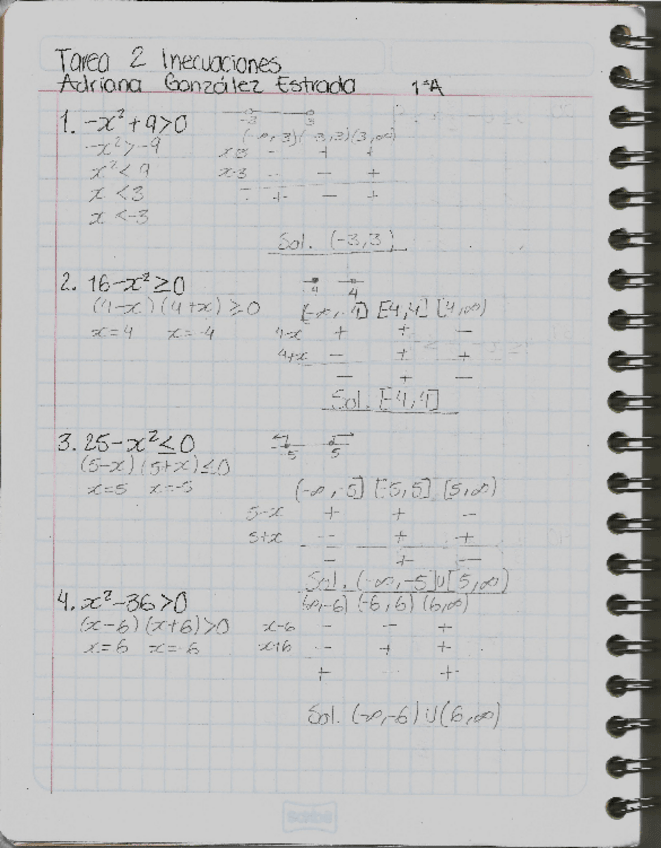 Tarea 2 Inecuaciones
Adriana González Estrada 1°A
1. -x²+9>0
-3 3
-x²>-9 (-∞,-3)(-3,3)(3,∞)
x²<9 - + +
x<3 x-3 - - +
x<-3 + - +
Sol. (-3,3)
2. 16-x²≥0
-4 4
(4-x)(4+x)≥0 [-∞,-4] [-4,4] [4,∞)
x=4 x=-4 4-x + + -
4+x - + +
- + -
Sol. [-4,4]
3. 25-x²≤0
-5 5
(5-x)(5+x)≤0
x=5 x=-5 (-∞,-5] [-5,5] [5,∞)
5-x + + -
5+x - + +
- + -
Sol. (-∞,-5]∪[5,∞)
4. x²-36>0 (∞,-6) (-6,6) (6,∞)
(x-6)(x+6)>0 x-6 - - +
x=6 x=-6 x+6 - + +
+ - +
Sol. (-∞,-6)∪(6,∞)
scribe